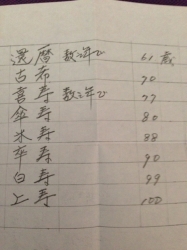 還暦 数え年で 61歳
古希 70
喜寿 数え年で 77
傘寿 80
米寿 88
卒寿 90
白寿 99
上寿 100